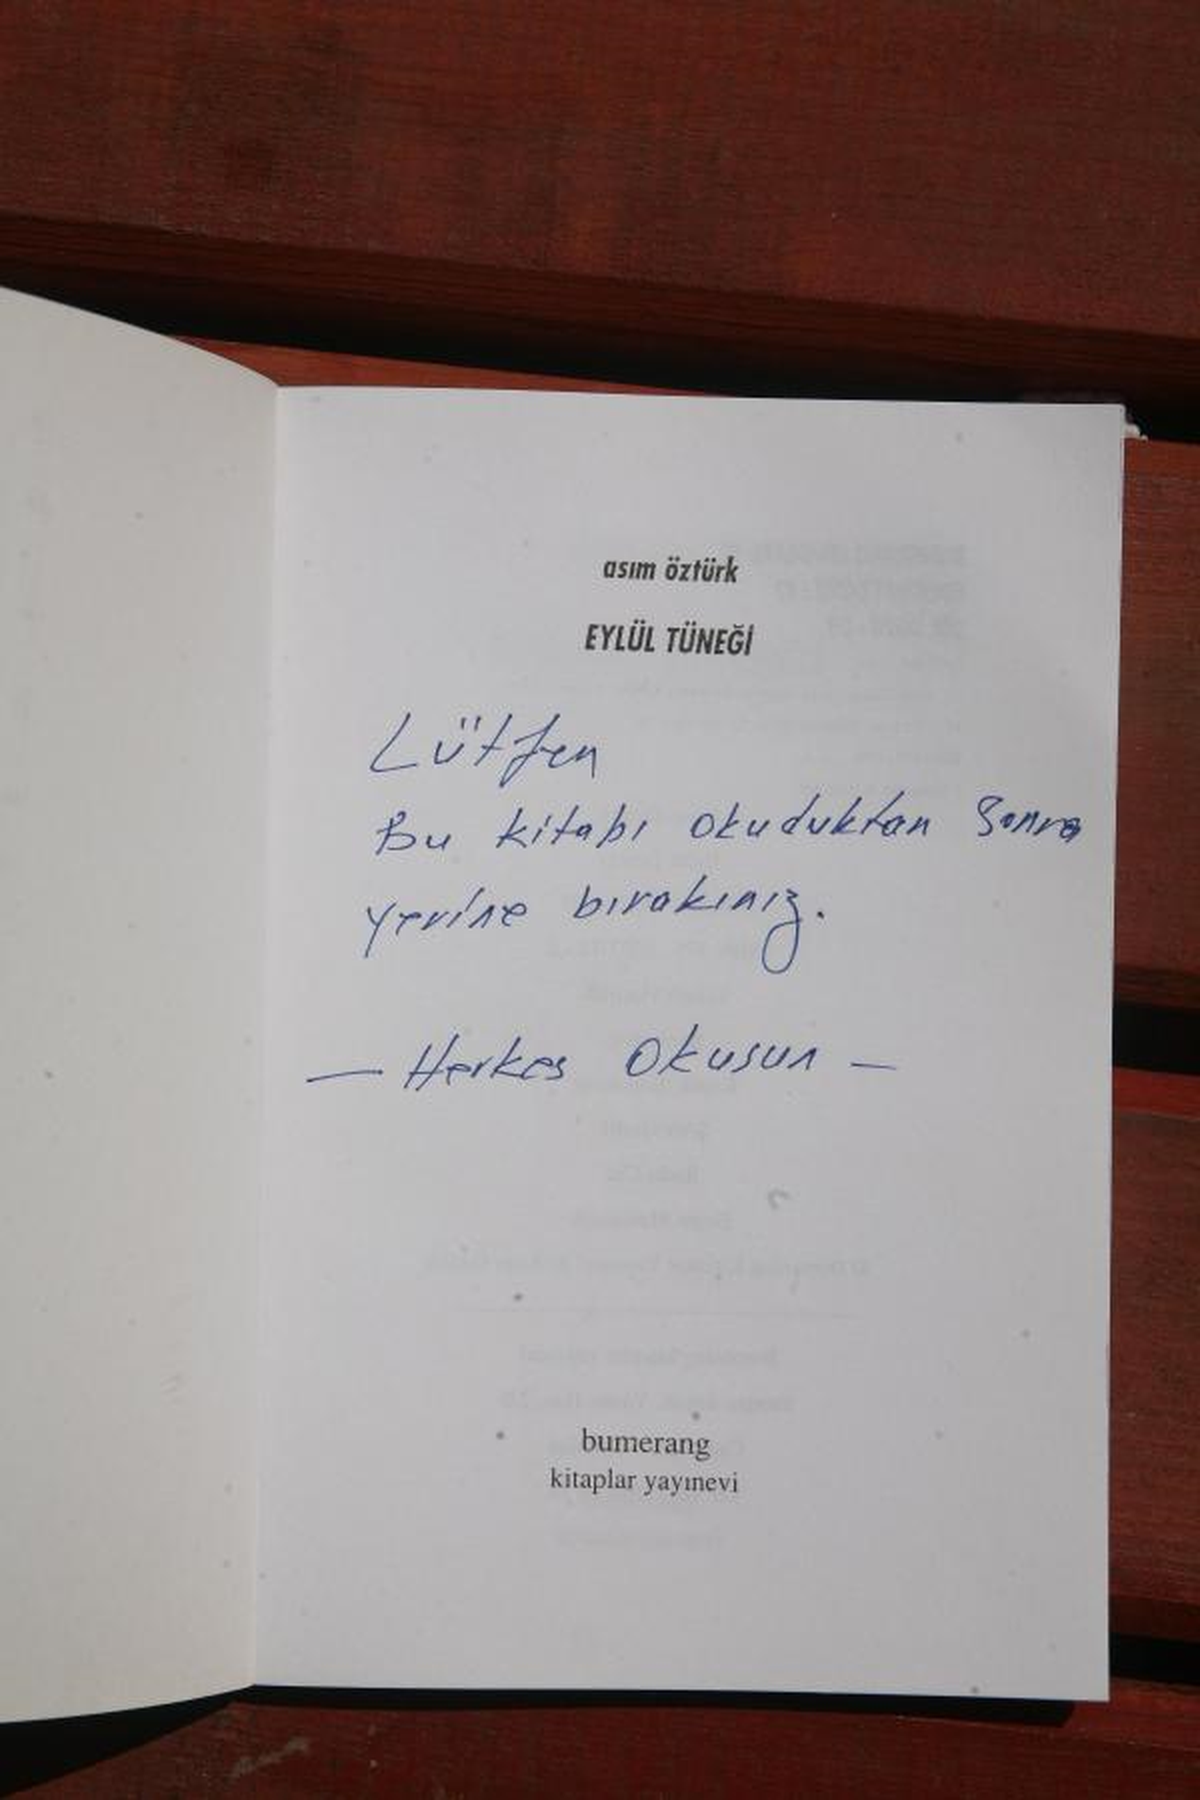 asım öztürk
EYLÜL TÜNEĞİ
Lütfen
Bu kitabı okuduktan sonra
yerine bırakınız.
— Herkes Okusun —
bumerang
kitaplar yayınevi